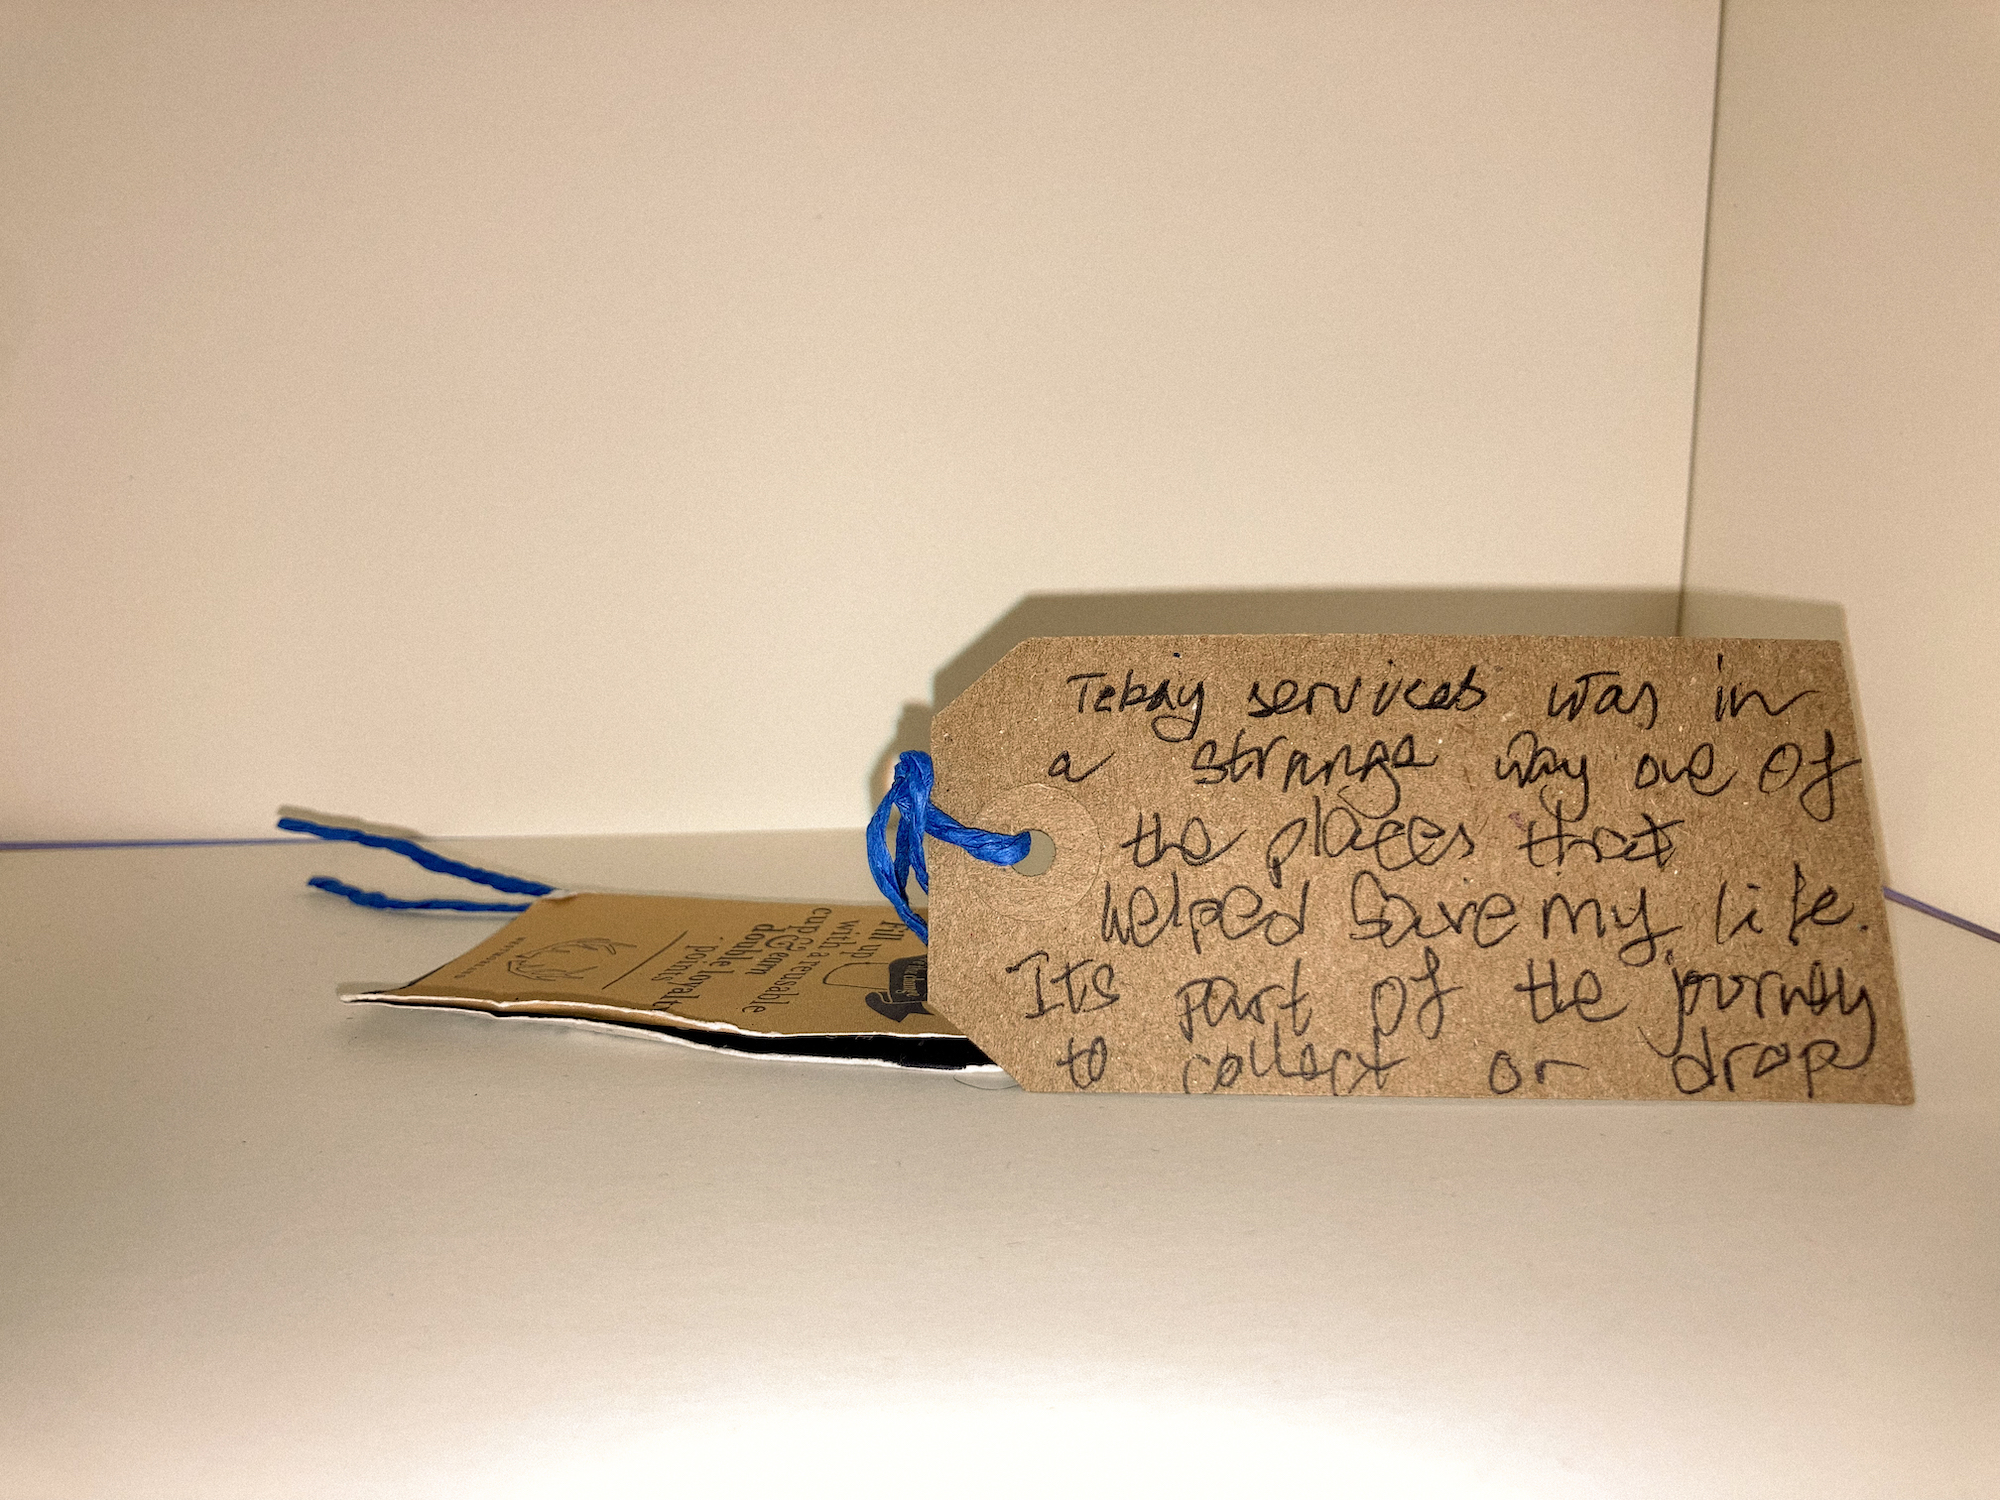 Tebay services was in
a strange way one of
the places that
helped save my life.
Its part of the journey
to collect or drop
Fill up
with a reusable
cup & earn
double loyalty
points
WESTMORLAND